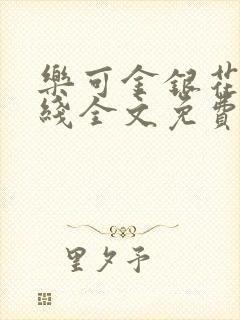 樂可金銀花
綫全文免費
里夕予